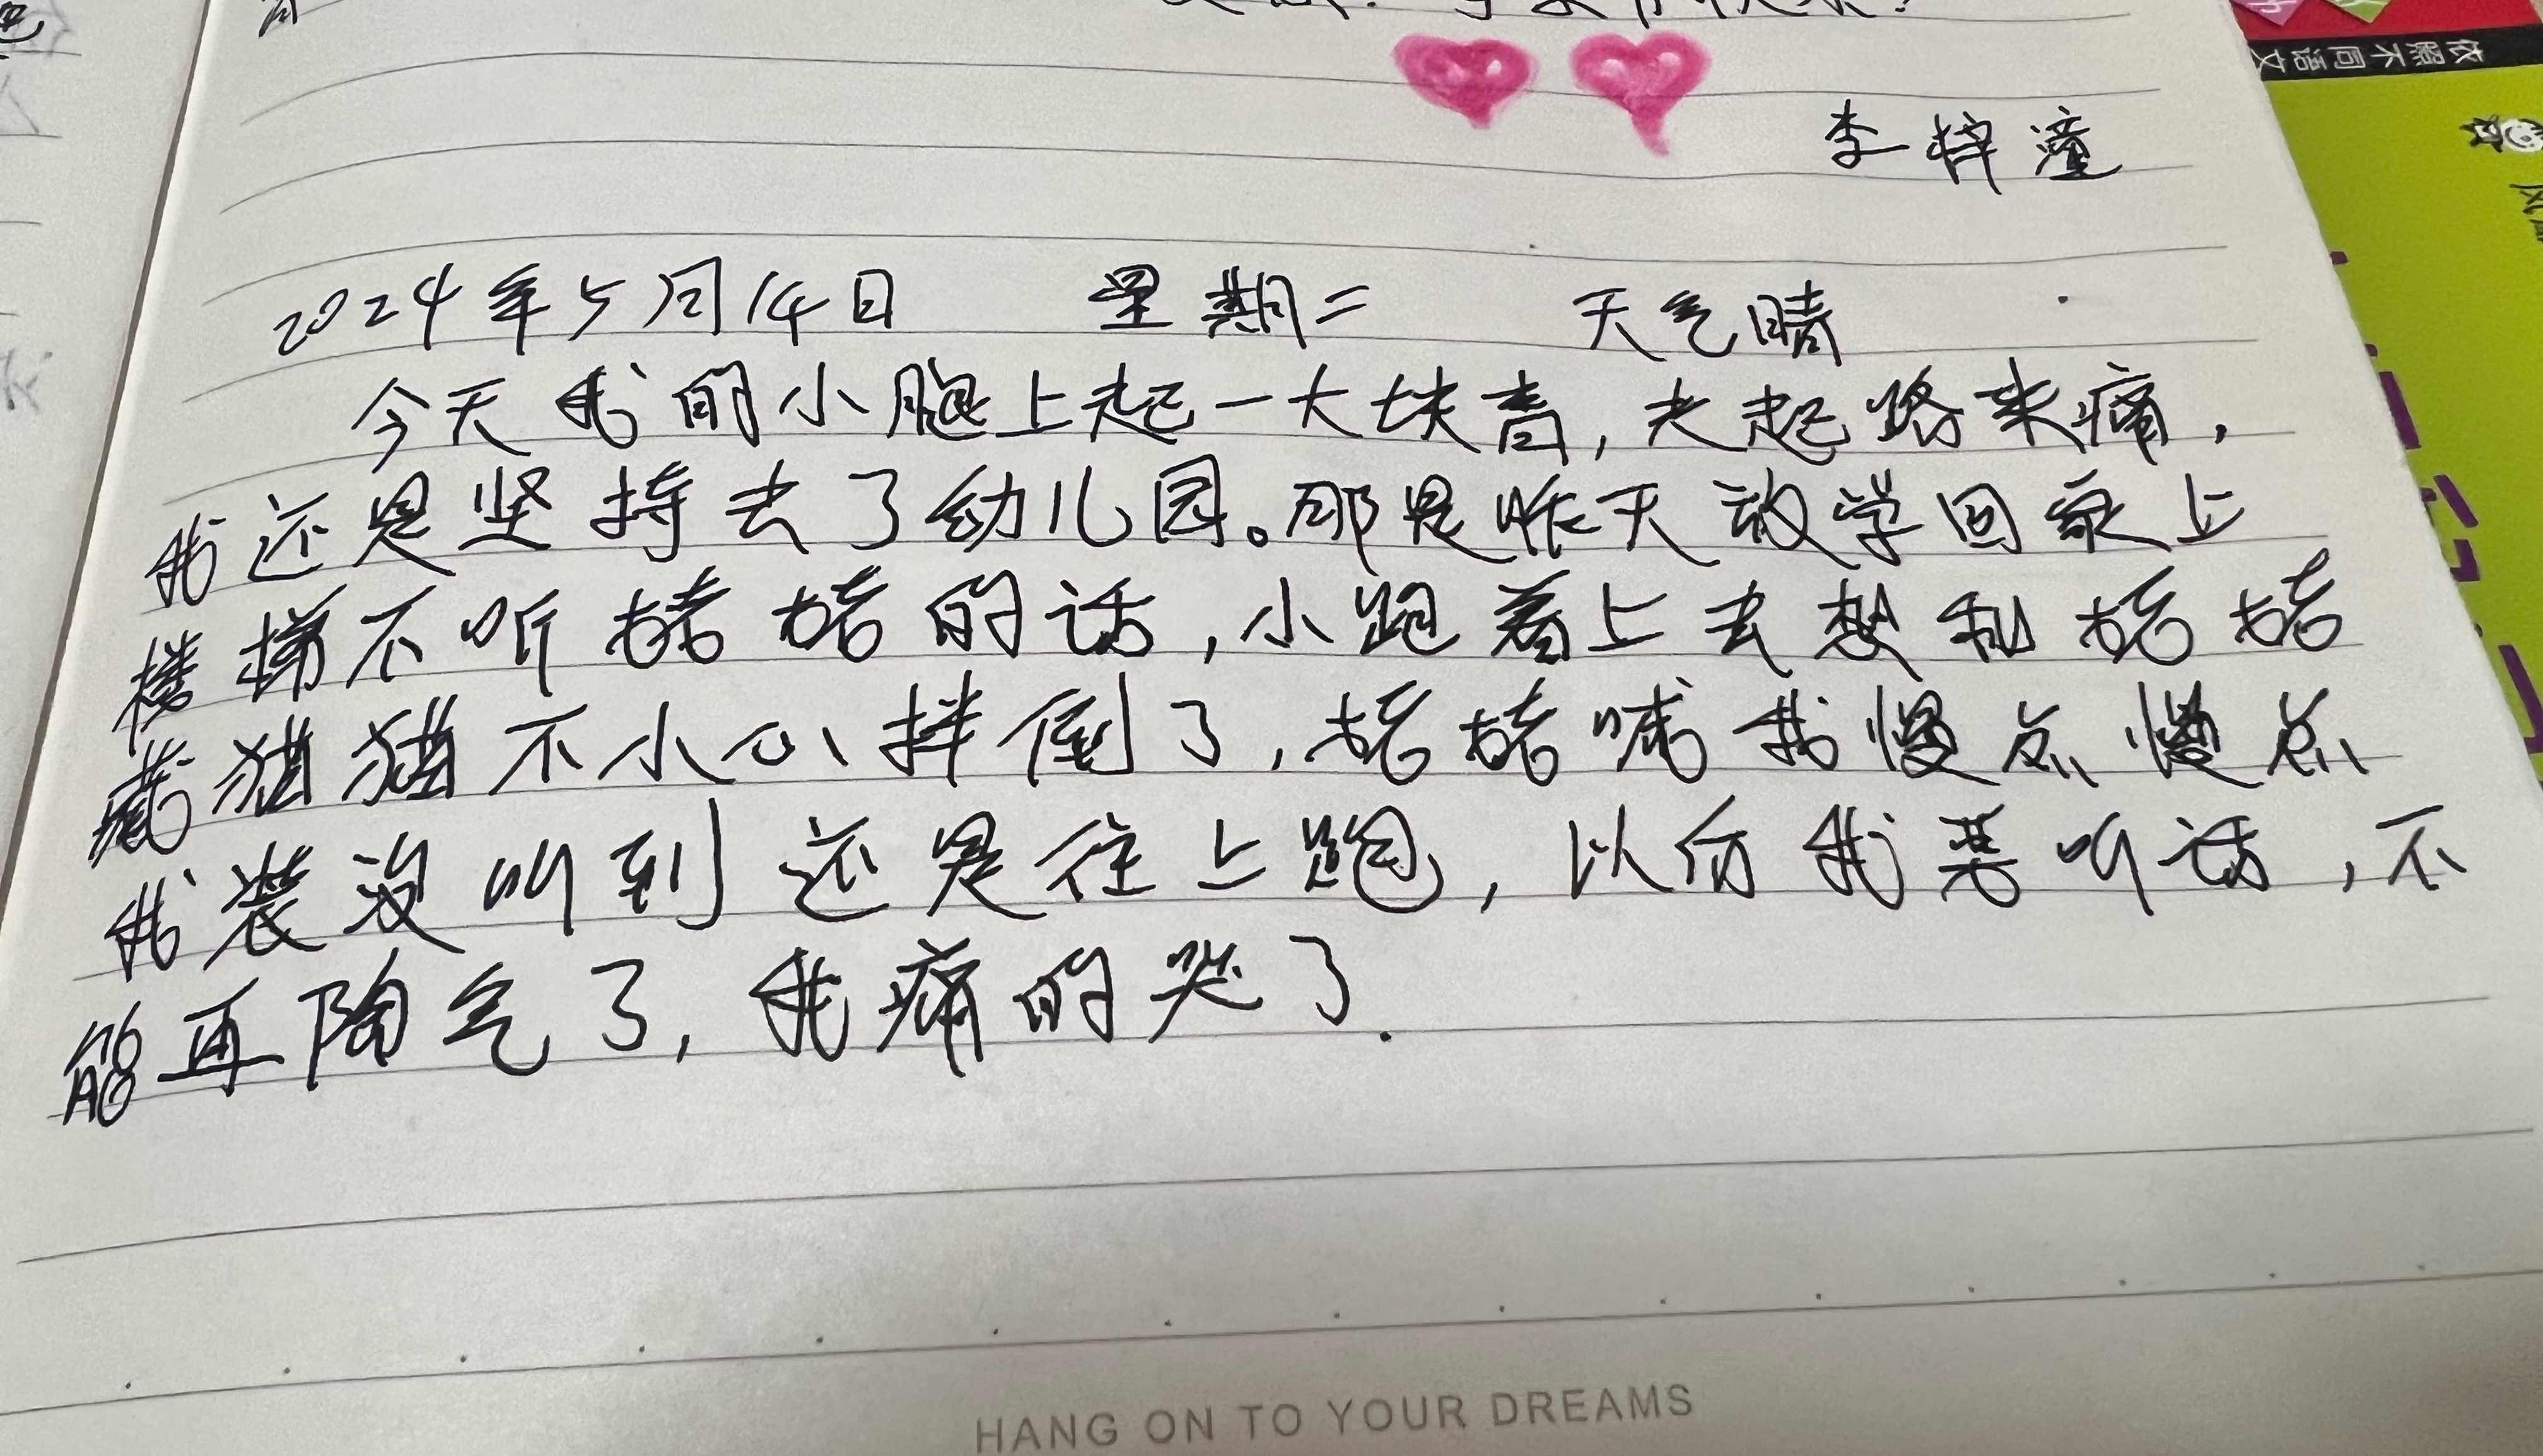 李梓潼
2024年5月14日 星期二 天气晴
今天我的小腿上起一大块青,走起路来痛,
我还是坚持去了幼儿园。那是昨天放学回家上
楼梯不听姥姥的话,小跑着上去想和姥姥
藏猫猫不小心拌倒了,姥姥喊我慢点慢点
我装没听到还是往上跑,以后我要听话,不
能再陶气了,我痛的哭了.
HANG ON TO YOUR DREAMS
依照不同语文